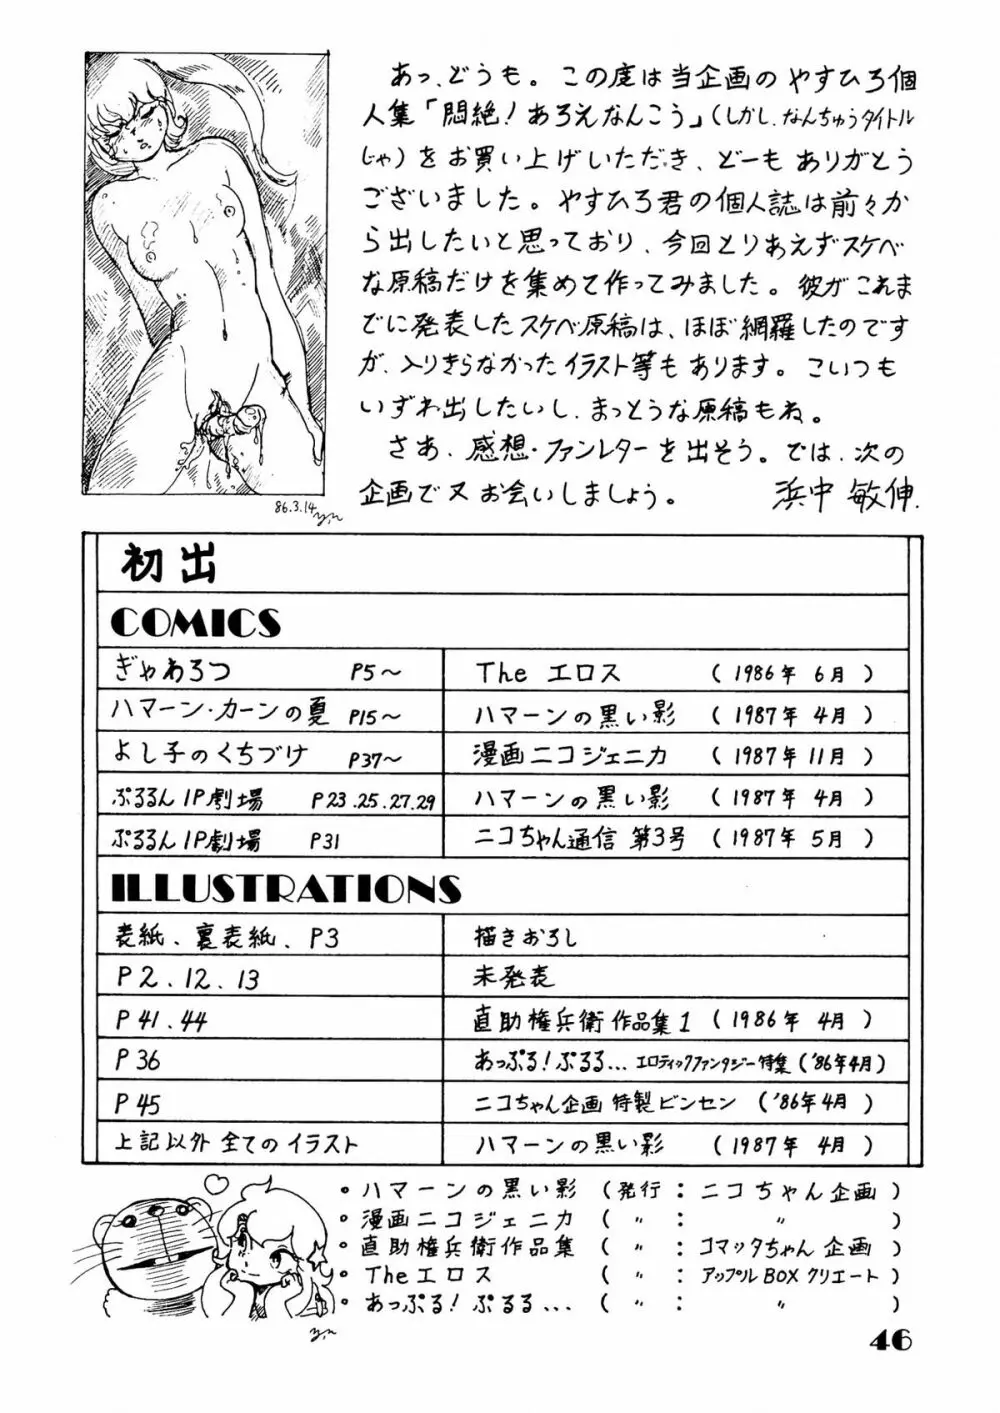 あっ、どうも。この度は当企画のやすひろ個
人集「悶絶！あろえなんこう」（しかし、なんちゅうタイトル
じゃ）をお買い上げいただき、どーもありがとう
ございました。やすひろ君の個人誌は前々か
ら出したいと思っており、今回とりあえずスケベ
な原稿だけを集めて作ってみました。彼がこれま
でに発表したスケベ原稿は、ほぼ網羅したのです
が、入りきらなかったイラスト等もあります。こいつも
いずれ出したいし、まっとうな原稿もね。
さあ、感想・ファンレターを出そう。では、次の
企画で又お会いしましょう。 浜中 敏伸.
86.3.14
初出
COMICS
ぎゃわろつ P5〜 The エロス （1986年 6月）
ハマーン・カーンの夏 P15〜 ハマーンの黒い影 （1987年 4月）
よし子のくちづけ P37〜 漫画ニコジェニカ （1987年 11月）
ぷるるん1P劇場 P23.25.27.29 ハマーンの黒い影 （1987年 4月）
ぷるるん1P劇場 P31 ニコちゃん通信 第3号 （1987年 5月）
ILLUSTRATIONS
表紙、裏表紙、P3 描きおろし
P2.12.13 未発表
P41.44 直助権兵衛作品集1 （1986年 4月）
P36 あっぷる！ぷるる… エロティックファンタジー特集（'86年4月）
P45 ニコちゃん企画 特製ビンセン （'86年4月）
上記以外全てのイラスト ハマーンの黒い影 （1987年 4月）
・ハマーンの黒い影 （発行：ニコちゃん企画）
・漫画ニコジェニカ （ 〃 ： 〃 ）
・直助権兵衛作品集 （ 〃 ：コマッタちゃん企画）
・Theエロス （ 〃 ：アップルBOXクリエート）
・あっぷる！ぷるる… （ 〃 ： 〃 ）
46